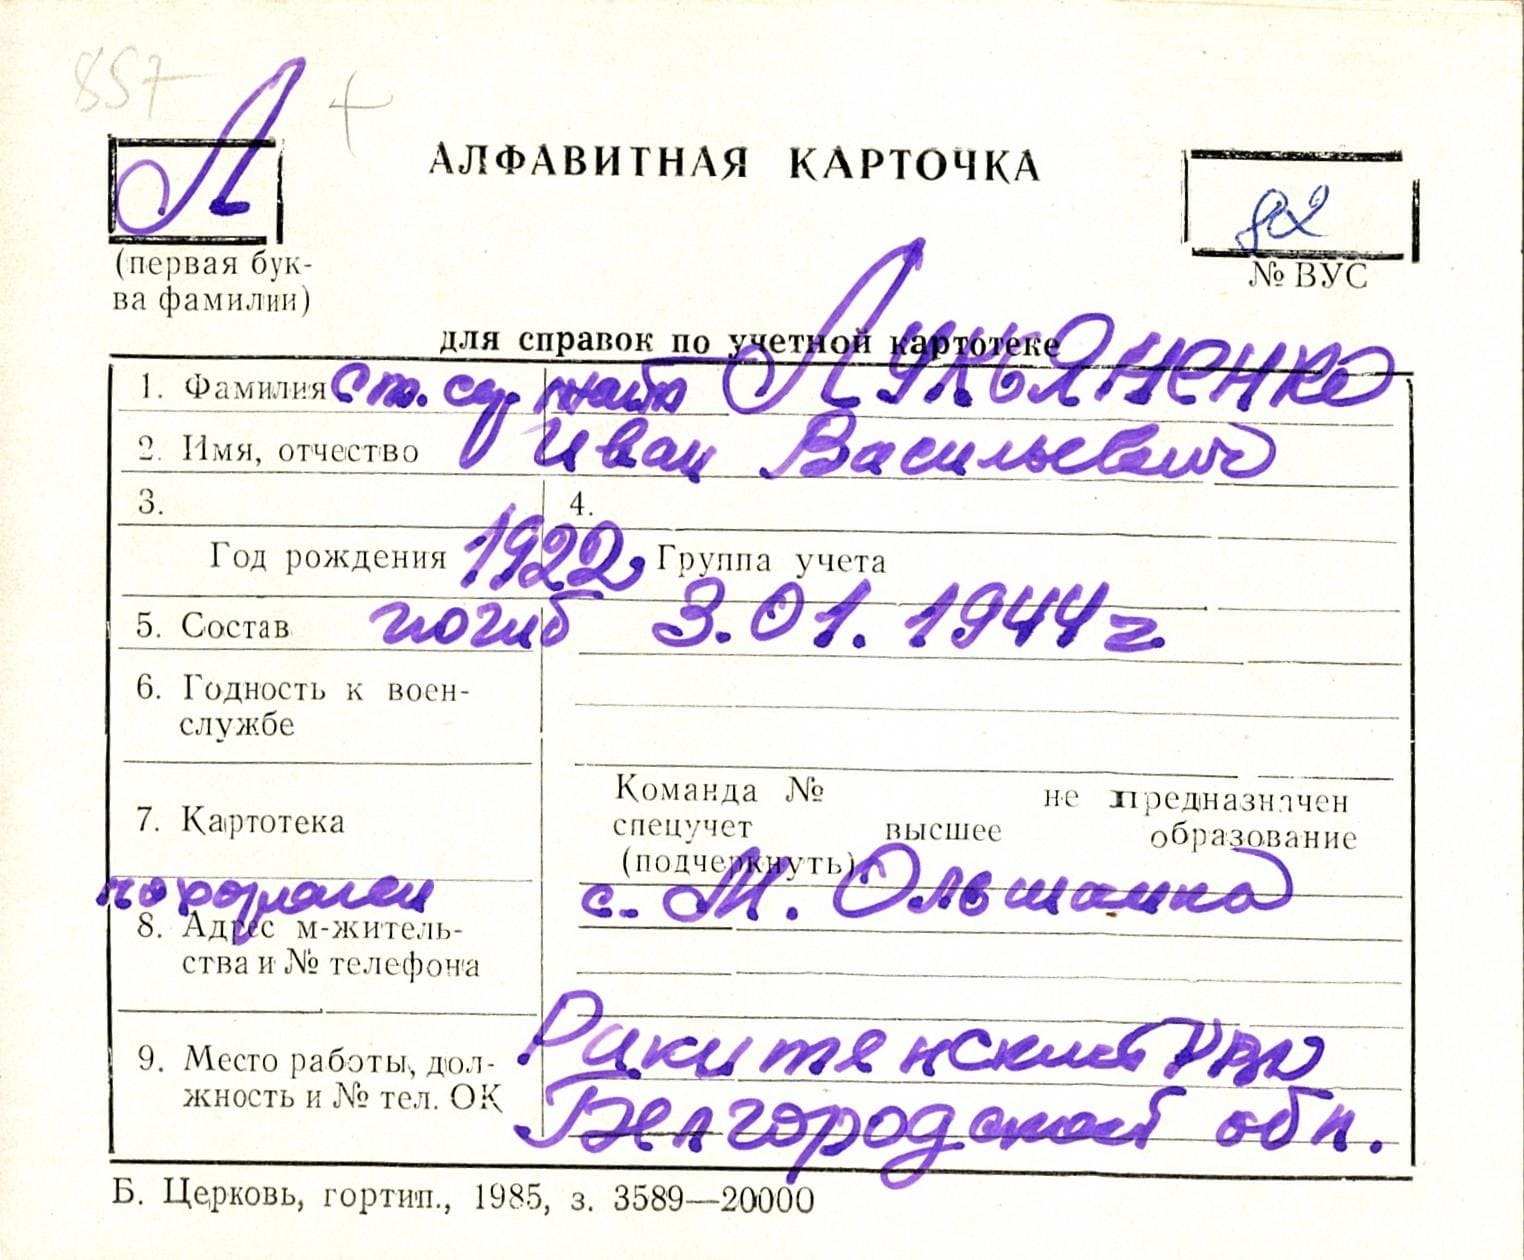 857 +
Л
АЛФАВИТНАЯ КАРТОЧКА
(первая бук-
ва фамилии)
№ ВУС
для справок по учетной картотеке
1. Фамилия ст. сержант ЛУКЬЯНЕНКО
2. Имя, отчество Иван Васильевич
3. 4.
Год рождения 1922 Группа учета
5. Состав погиб 3.01.1944 г.
6. Годность к воен-
службе
7. Картотека
Команда № не предназначен
спецучет высшее образование
(подчеркнуть)
похоронен с. М. Ольшанка
8. Адрес м-житель-
ства и № телефона
9. Место работы, дол-
жность и № тел. ОК
Ракитянский РВК
Белгородской обл.
Б. Церковь, гортип., 1985, з. 3589—20000